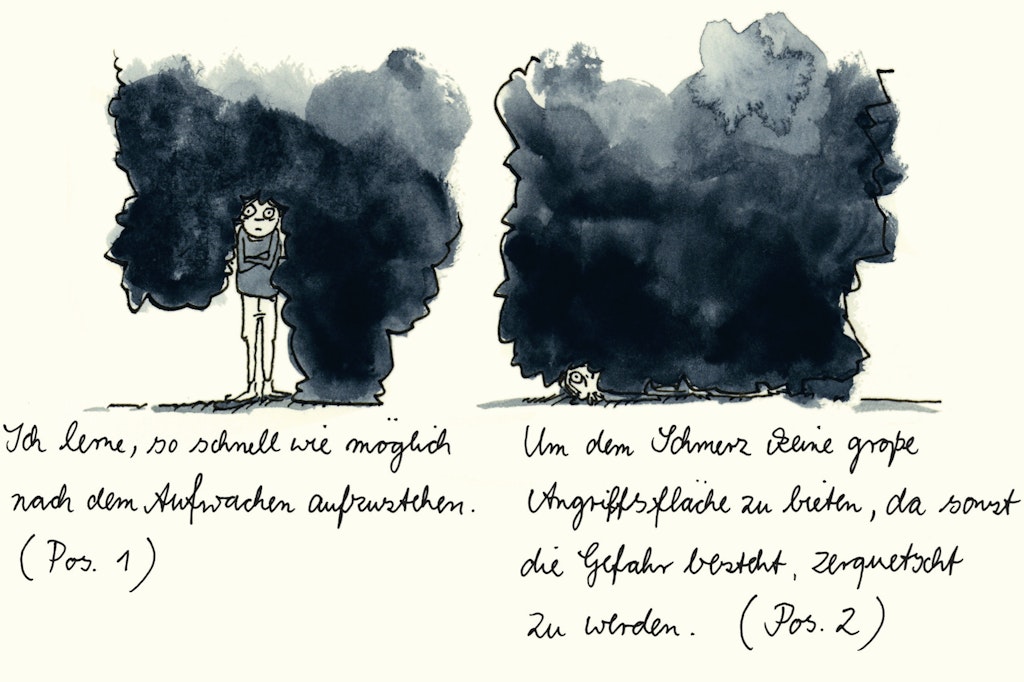 Ich lerne, so schnell wie möglich
nach dem Aufwachen aufzustehen.
(Pos. 1)
Um dem Schmerz keine große
Angriffsfläche zu bieten, da sonst
die Gefahr besteht, zerquetscht
zu werden. (Pos. 2)